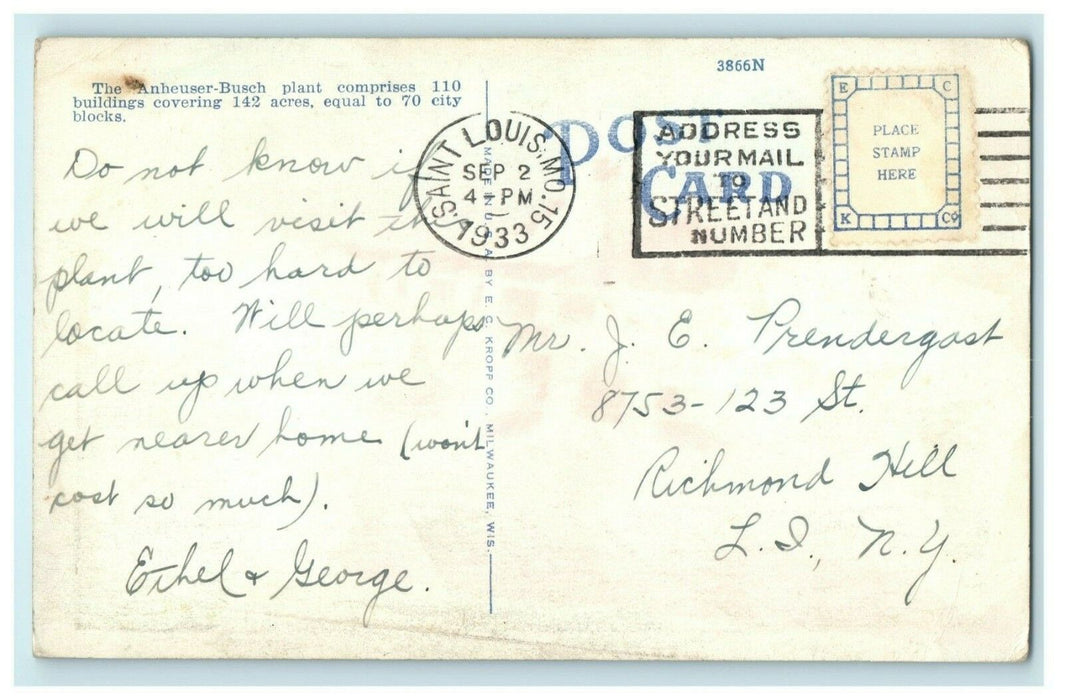 The Anheuser-Busch plant comprises 110
buildings covering 142 acres, equal to 70 city
blocks.
Do not know if
we will visit th
plant, too hard to
locate. Will perhaps
call up when we
get nearer home (won't
cost so much).
Ethel & George.
MADE IN U.S.A. BY E. C. KROPP CO. MILWAUKEE, WIS.
3866N
POST
CARD
SAINT LOUIS, MO. 15
SEP 2
4 - PM
1933
ADDRESS
YOUR MAIL
TO
STREET AND
NUMBER
E C
PLACE
STAMP
HERE
K Co
Mr. J. E. Prendergast
8753-123 St.
Richmond Hill
L. I., N.Y.